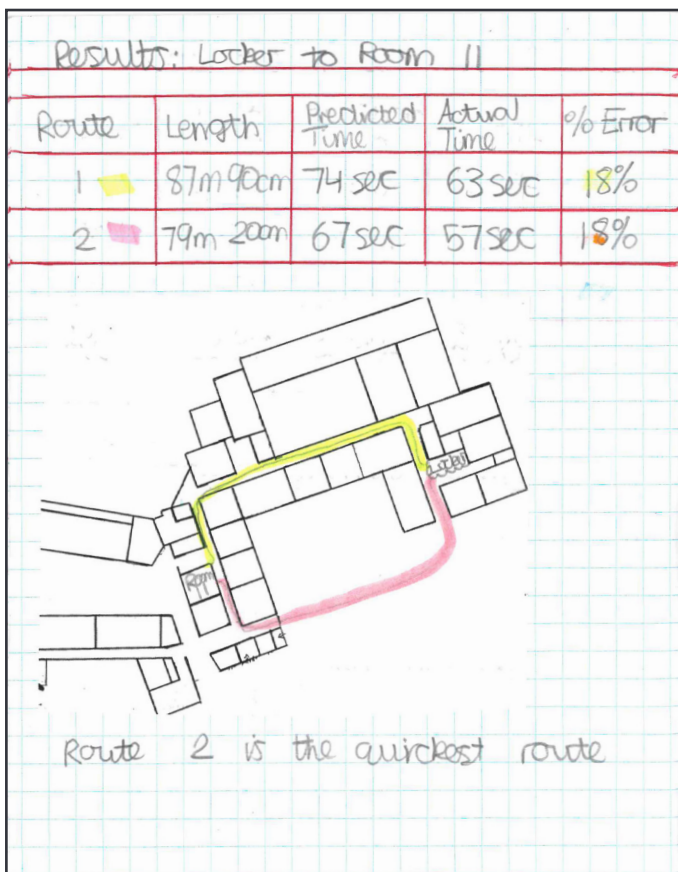 Results: Locker to Room 11
Route Length Predicted Time Actual Time % Error
1 87m 90cm 74 sec 63 sec 18%
2 79m 20cm 67 sec 57 sec 18%
Locker
Room
11
Route 2 is the quickest route